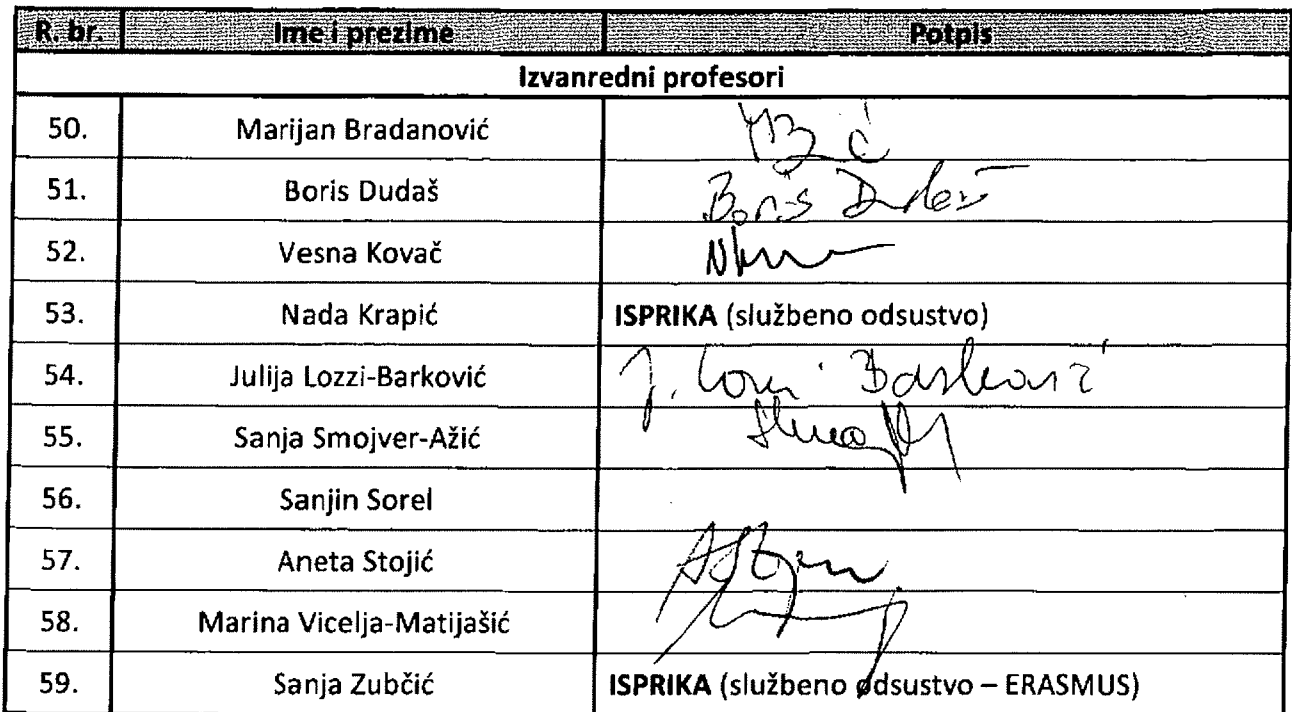 R. br. Ime i prezime Potpis
Izvanredni profesori
50. Marijan Bradanović
51. Boris Dudaš Boris Dudaš
52. Vesna Kovač
53. Nada Krapić ISPRIKA (službeno odsustvo)
54. Julija Lozzi-Barković J. Lozzi Barković
55. Sanja Smojver-Ažić
56. Sanjin Sorel
57. Aneta Stojić
58. Marina Vicelja-Matijašić
59. Sanja Zubčić ISPRIKA (službeno odsustvo – ERASMUS)